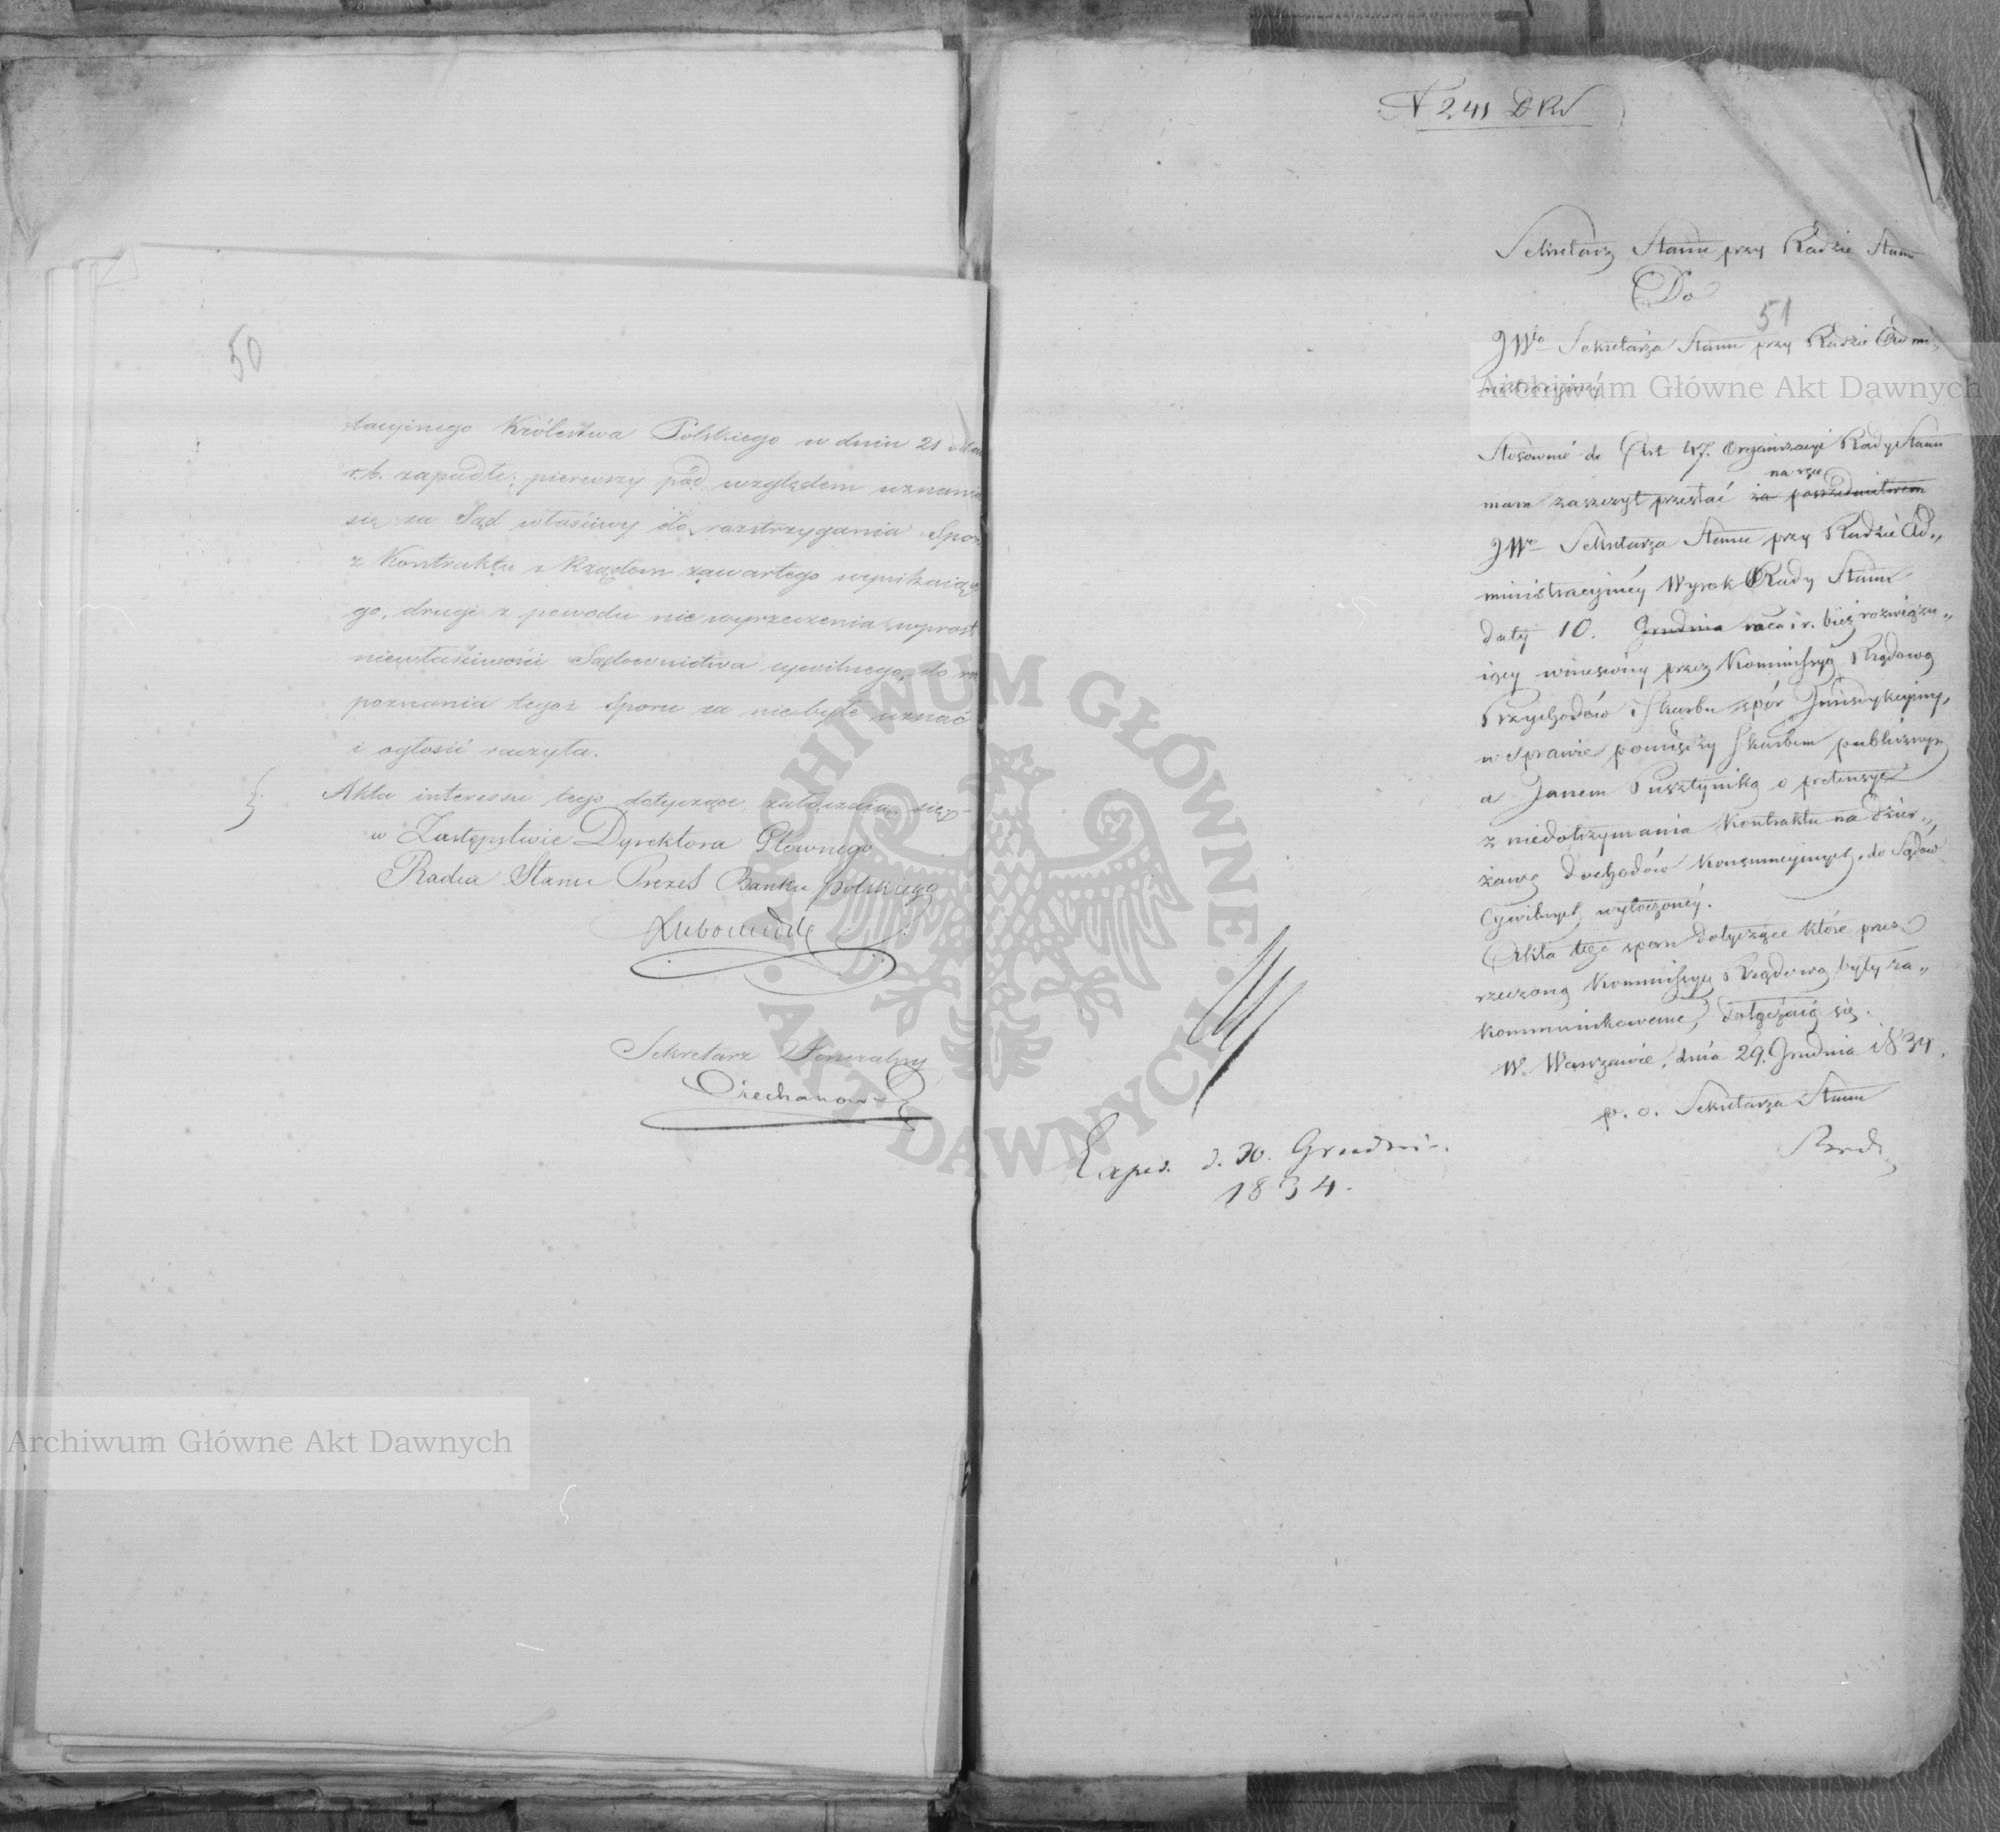 50
tacyinego Królestwa Polskiego w dniu 21 Maia
r. b. zapadłe; pierwszy pod względem uznania
się za Sąd właściwy do rozstrzygania Sporu
z Kontraktu z Rządem zawartego wynikaiące
go, drugi z powodu nie wyrzeczenia wprost
niewłaściwości Sądownictwa cywilnego, do roz
poznania tegoż Sporu za niebyłe uznać
i ogłosić raczyła.
Akta interessu tego dotyczące załączaią się.
w Zastępstwie Dyrektora Głównego
Radca Stanu Prezes Banku polskiego
Lubowidzki
Sekretarz Jeneralny
Ciechanowski
N 241 DRS
Sekretarz Stanu przy Radzie Stanu
Do
51
JWgo Sekretarza Stanu przy Radzie Admi„
nistracyjnéy
Stosownie do Art 47. Organizacyi Rady Stanu
na ręce
mam zaszczyt przesłać za pośrednictwem
JWgo Sekretarza Stanu przy Radzie Ad„
ministracyjnéy Wyrok Rady Stanu
daty 10. Grudnia r. bież rozwiązu„
iący wniesiony przez Kommissyą Rządową
Przychodów i Skarbu spór Jurisdykcyiny,
w Sprawie pomiędzy Skarbem publicznym
a Janem Pusztyniką o pretensye
z niedotrzymania Kontraktu na dzier„
żawę dochodów Konsumcyinych, do Sądów
Cywilnych wytoczonéy.
Akta tego sporu dotyczące które przez
rzeczoną Kommissyą Rządową były za„
kommunikowane, dołączaią się.
W Warszawie, dnia 29. Grudnia 1834.
p. o. Sekretarza Stanu
Exped. d. 30. Grudnia
1834.
Archiwum Główne Akt Dawnych
Archiwum Główne Akt Dawnych
ARCHIWUM GŁÓWNE
AKT DAWNYCH